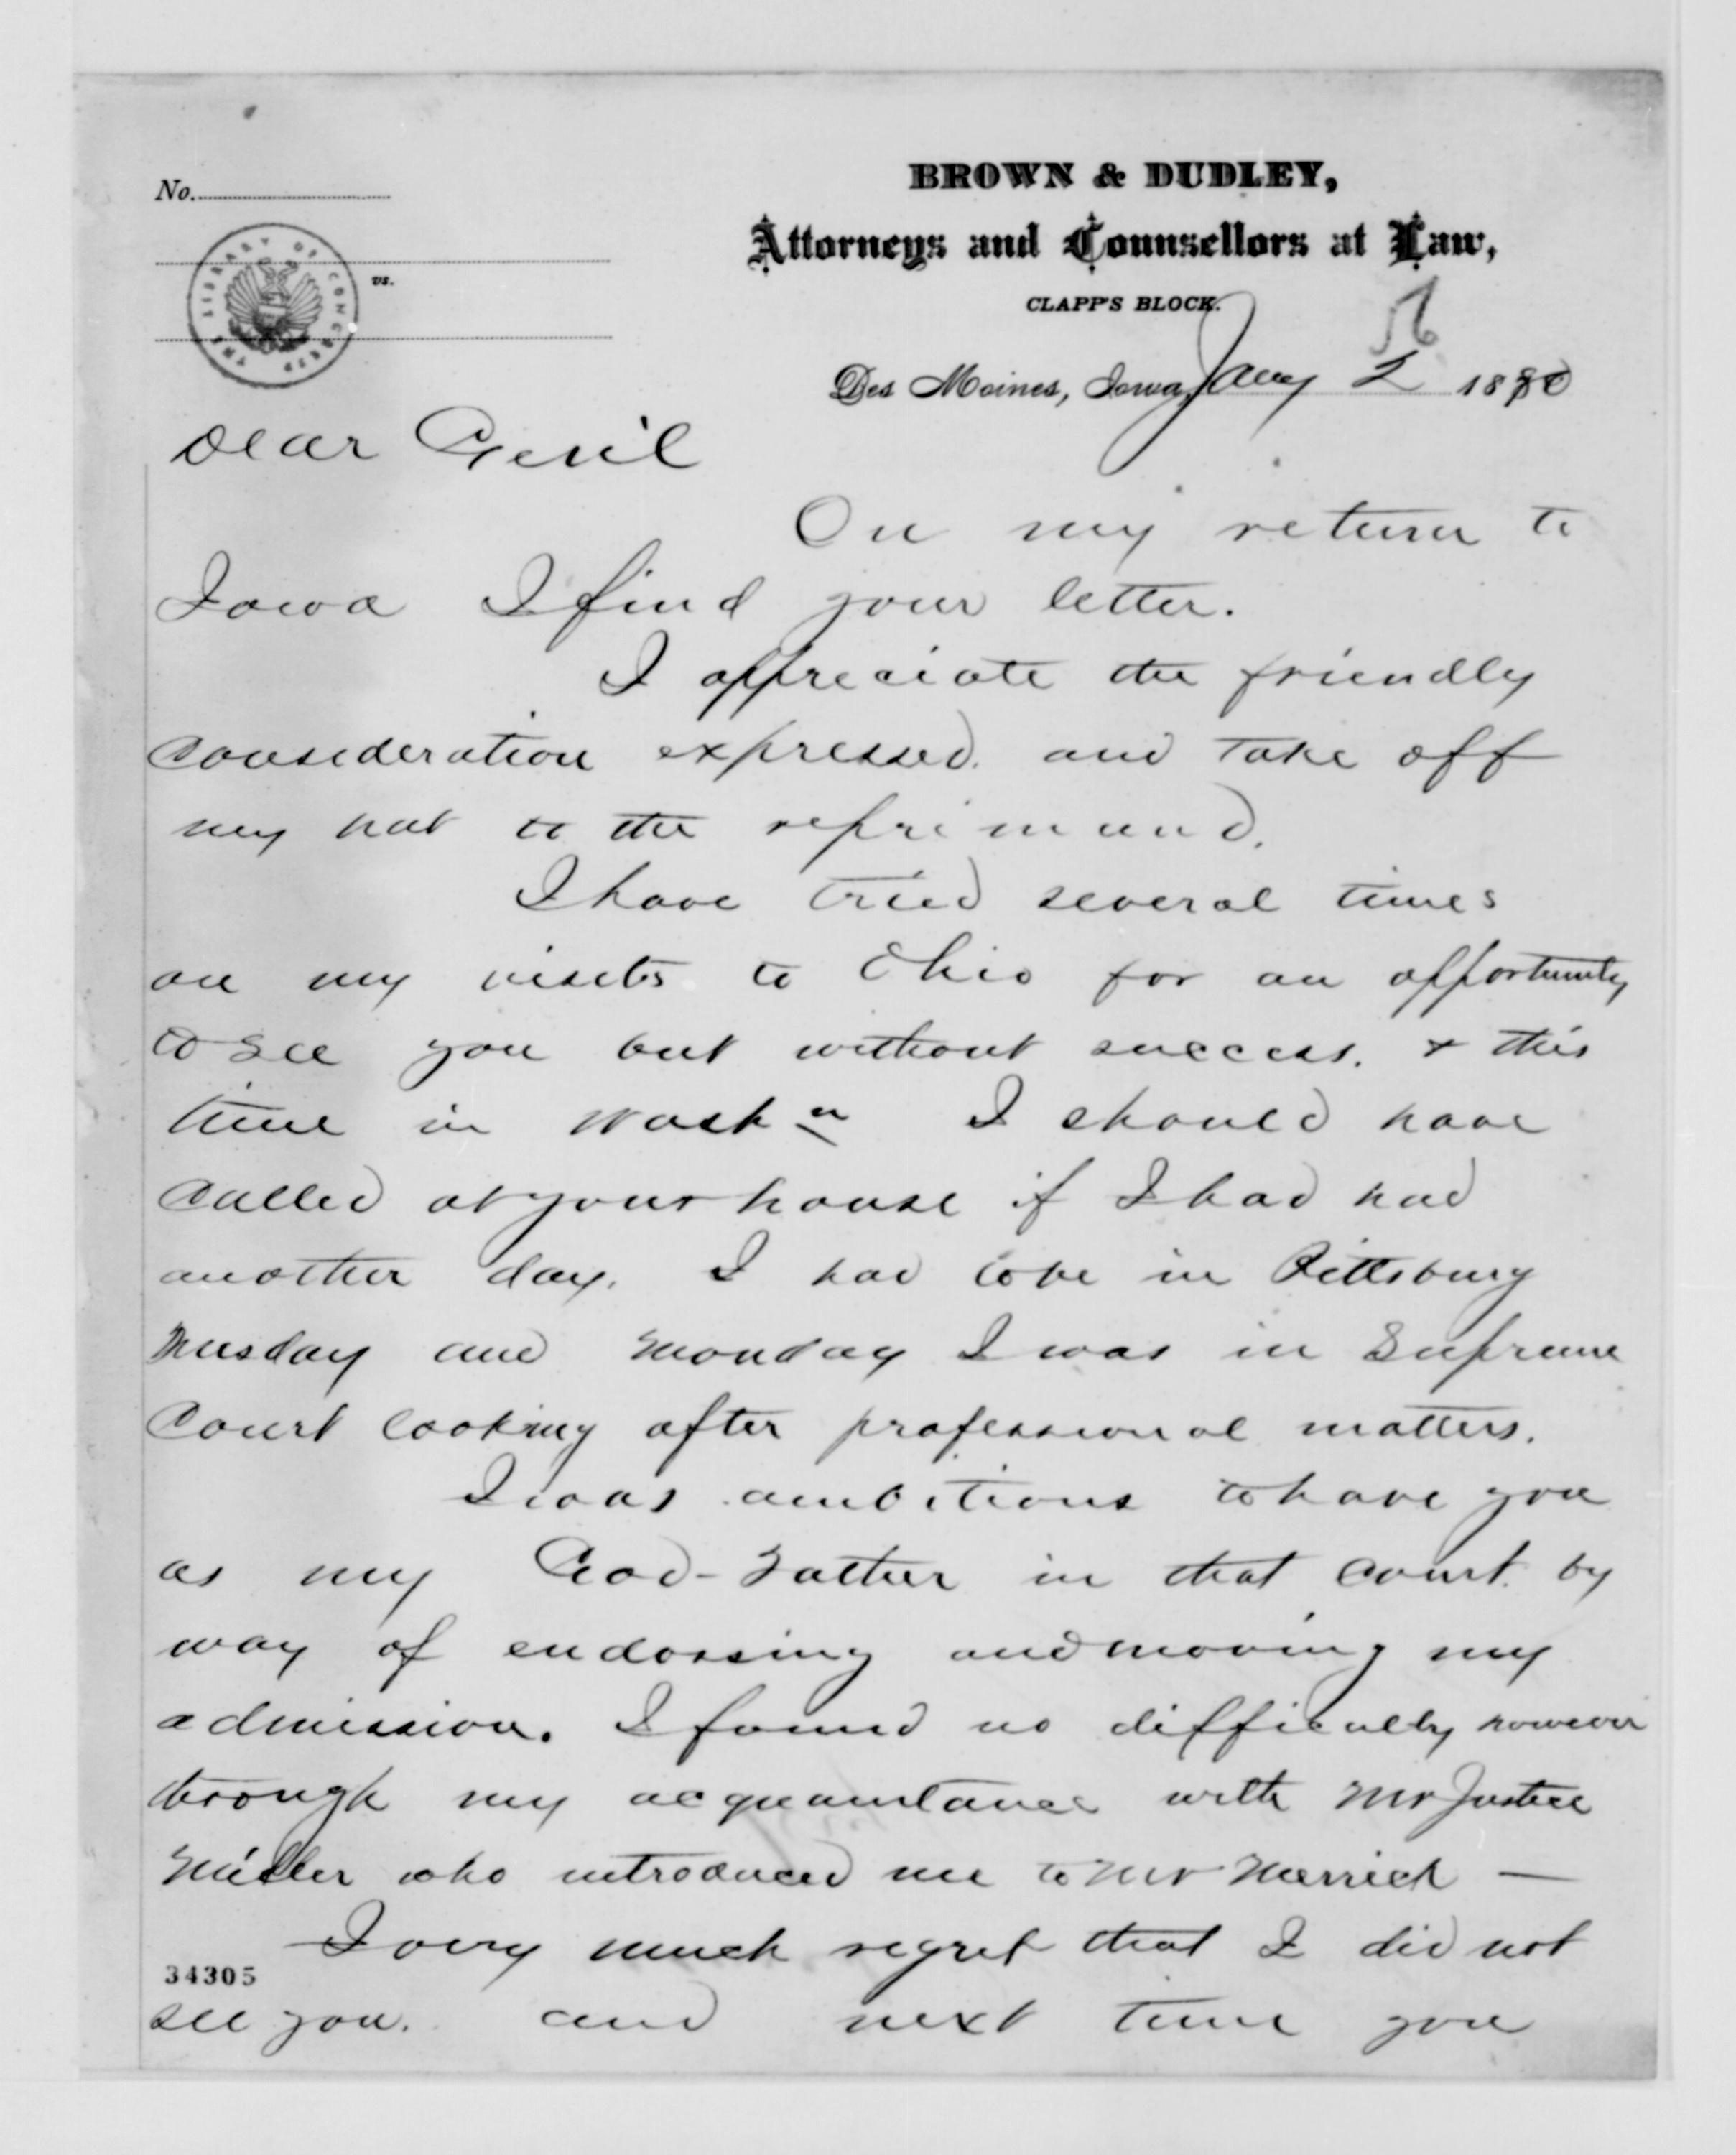 BROWN & DUDLEY,
No.
Attorneys and Counsellors at Law,
THE LIBRARY OF CONGRESS
vs.
CLAPP'S BLOCK.
Des Moines, Iowa, Jany 2 1880
Dear Genl
On my return to
Iowa I find your letter.
I appreciate the friendly
consideration expressed. and take off
my hat to the reprimand.
I have tried several times
on my visits to Ohio for an opportunity
to see you but without success. & this
time in Washn I should have
called at your house if I had had
another day. I had to be in Pittsburg
Tuesday and Monday I was in Supreme
Court looking after professional matters.
I was ambitious to have you
as my God-Father in that court by
way of endorsing and moving my
admission. I found no difficulty however
through my acquaintance with Mr Justice
Miller who introduced me to Mr Merrick —
I very much regret that I did not
34305
see you. and next time you